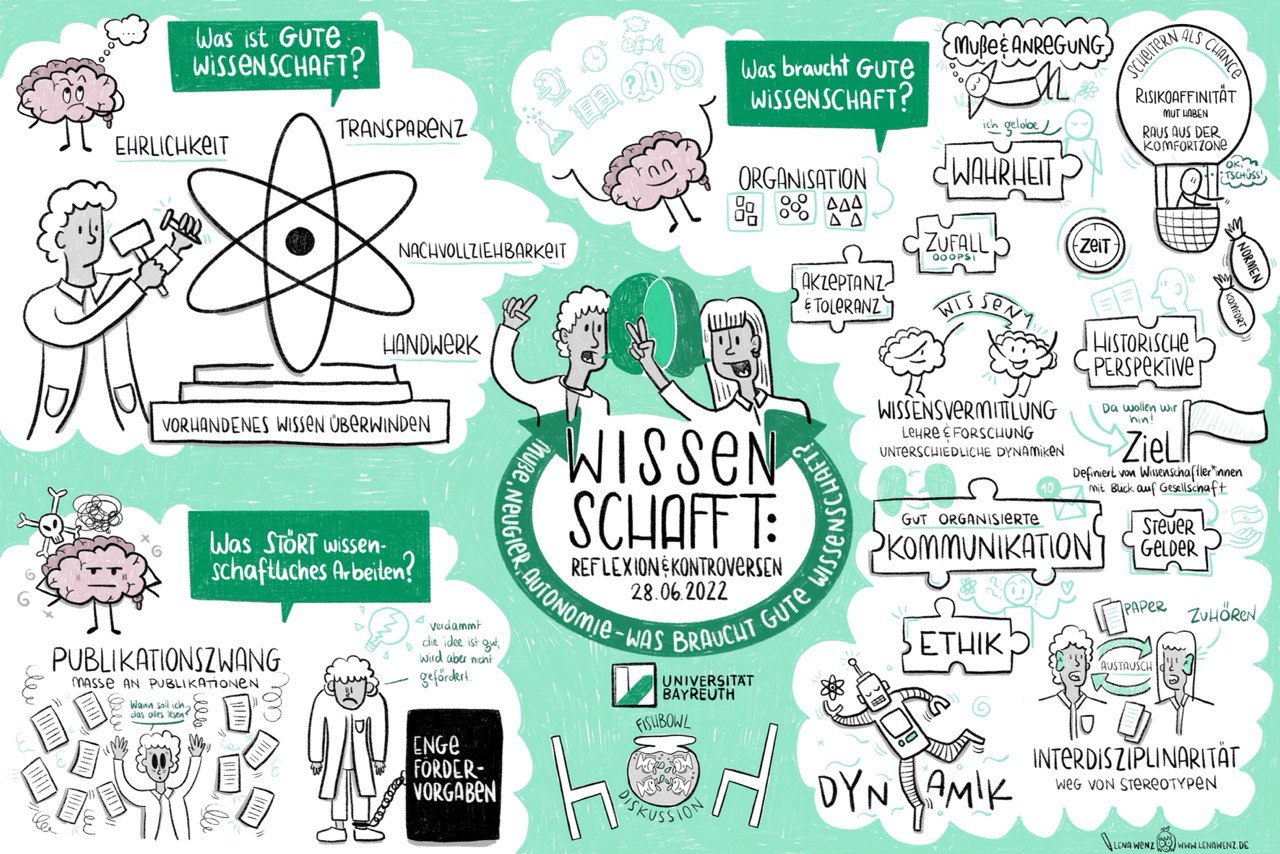 Was ist GUTE
WISSENSCHAFT?
EHRLICHKEIT
TRANSPARENZ
NACHVOLLZIEHBARKEIT
HANDWERK
VORHANDENES WISSEN ÜBERWINDEN
Was STÖRT wissen-
schaftliches Arbeiten?
PUBLIKATIONSZWANG
MASSE AN PUBLIKATIONEN
Wann soll ich
das alles lesen?
verdammt
die idee ist gut,
wird aber nicht
gefördert.
ENGE
FÖRDER-
VORGABEN
WISSEN
SCHAFFT:
REFLEXION & KONTROVERSEN
28.06.2022
MUßE, NEUGIER, AUTONOMIE - WAS BRAUCHT GUTE WISSENSCHAFT?
UNIVERSITÄT
BAYREUTH
FISHBOWL
DISKUSSION
Was braucht GUTE
WISSENSCHAFT?
ORGANISATION
MUßE & ANREGUNG
ich gelobe
WAHRHEIT
SCHEITERN ALS CHANCE
RISIKOAFFINITÄT
MUT HABEN
RAUS AUS DER
KOMFORTZONE
OK!
TSCHÜSS!
NORMEN
KOMFORT
ZUFALL
OOOPS!
ZEIT
AKZEPTANZ
& TOLERANZ
WISSEN
WISSENSVERMITTLUNG
LEHRE & FORSCHUNG
UNTERSCHIEDLICHE DYNAMIKEN
HISTORISCHE
PERSPEKTIVE
Da wollen wir
hin!
ZIEL
Definiert von Wissenschaftler*innen
mit Blick auf Gesellschaft
GUT ORGANISIERTE
KOMMUNIKATION
10
STEUER
GELDER
ETHIK
DYNAMIK
PAPER
ZUHÖREN
AUSTAUSCH
INTERDISZIPLINARITÄT
WEG VON STEREOTYPEN
LENA WENZ WWW.LENAWENZ.DE